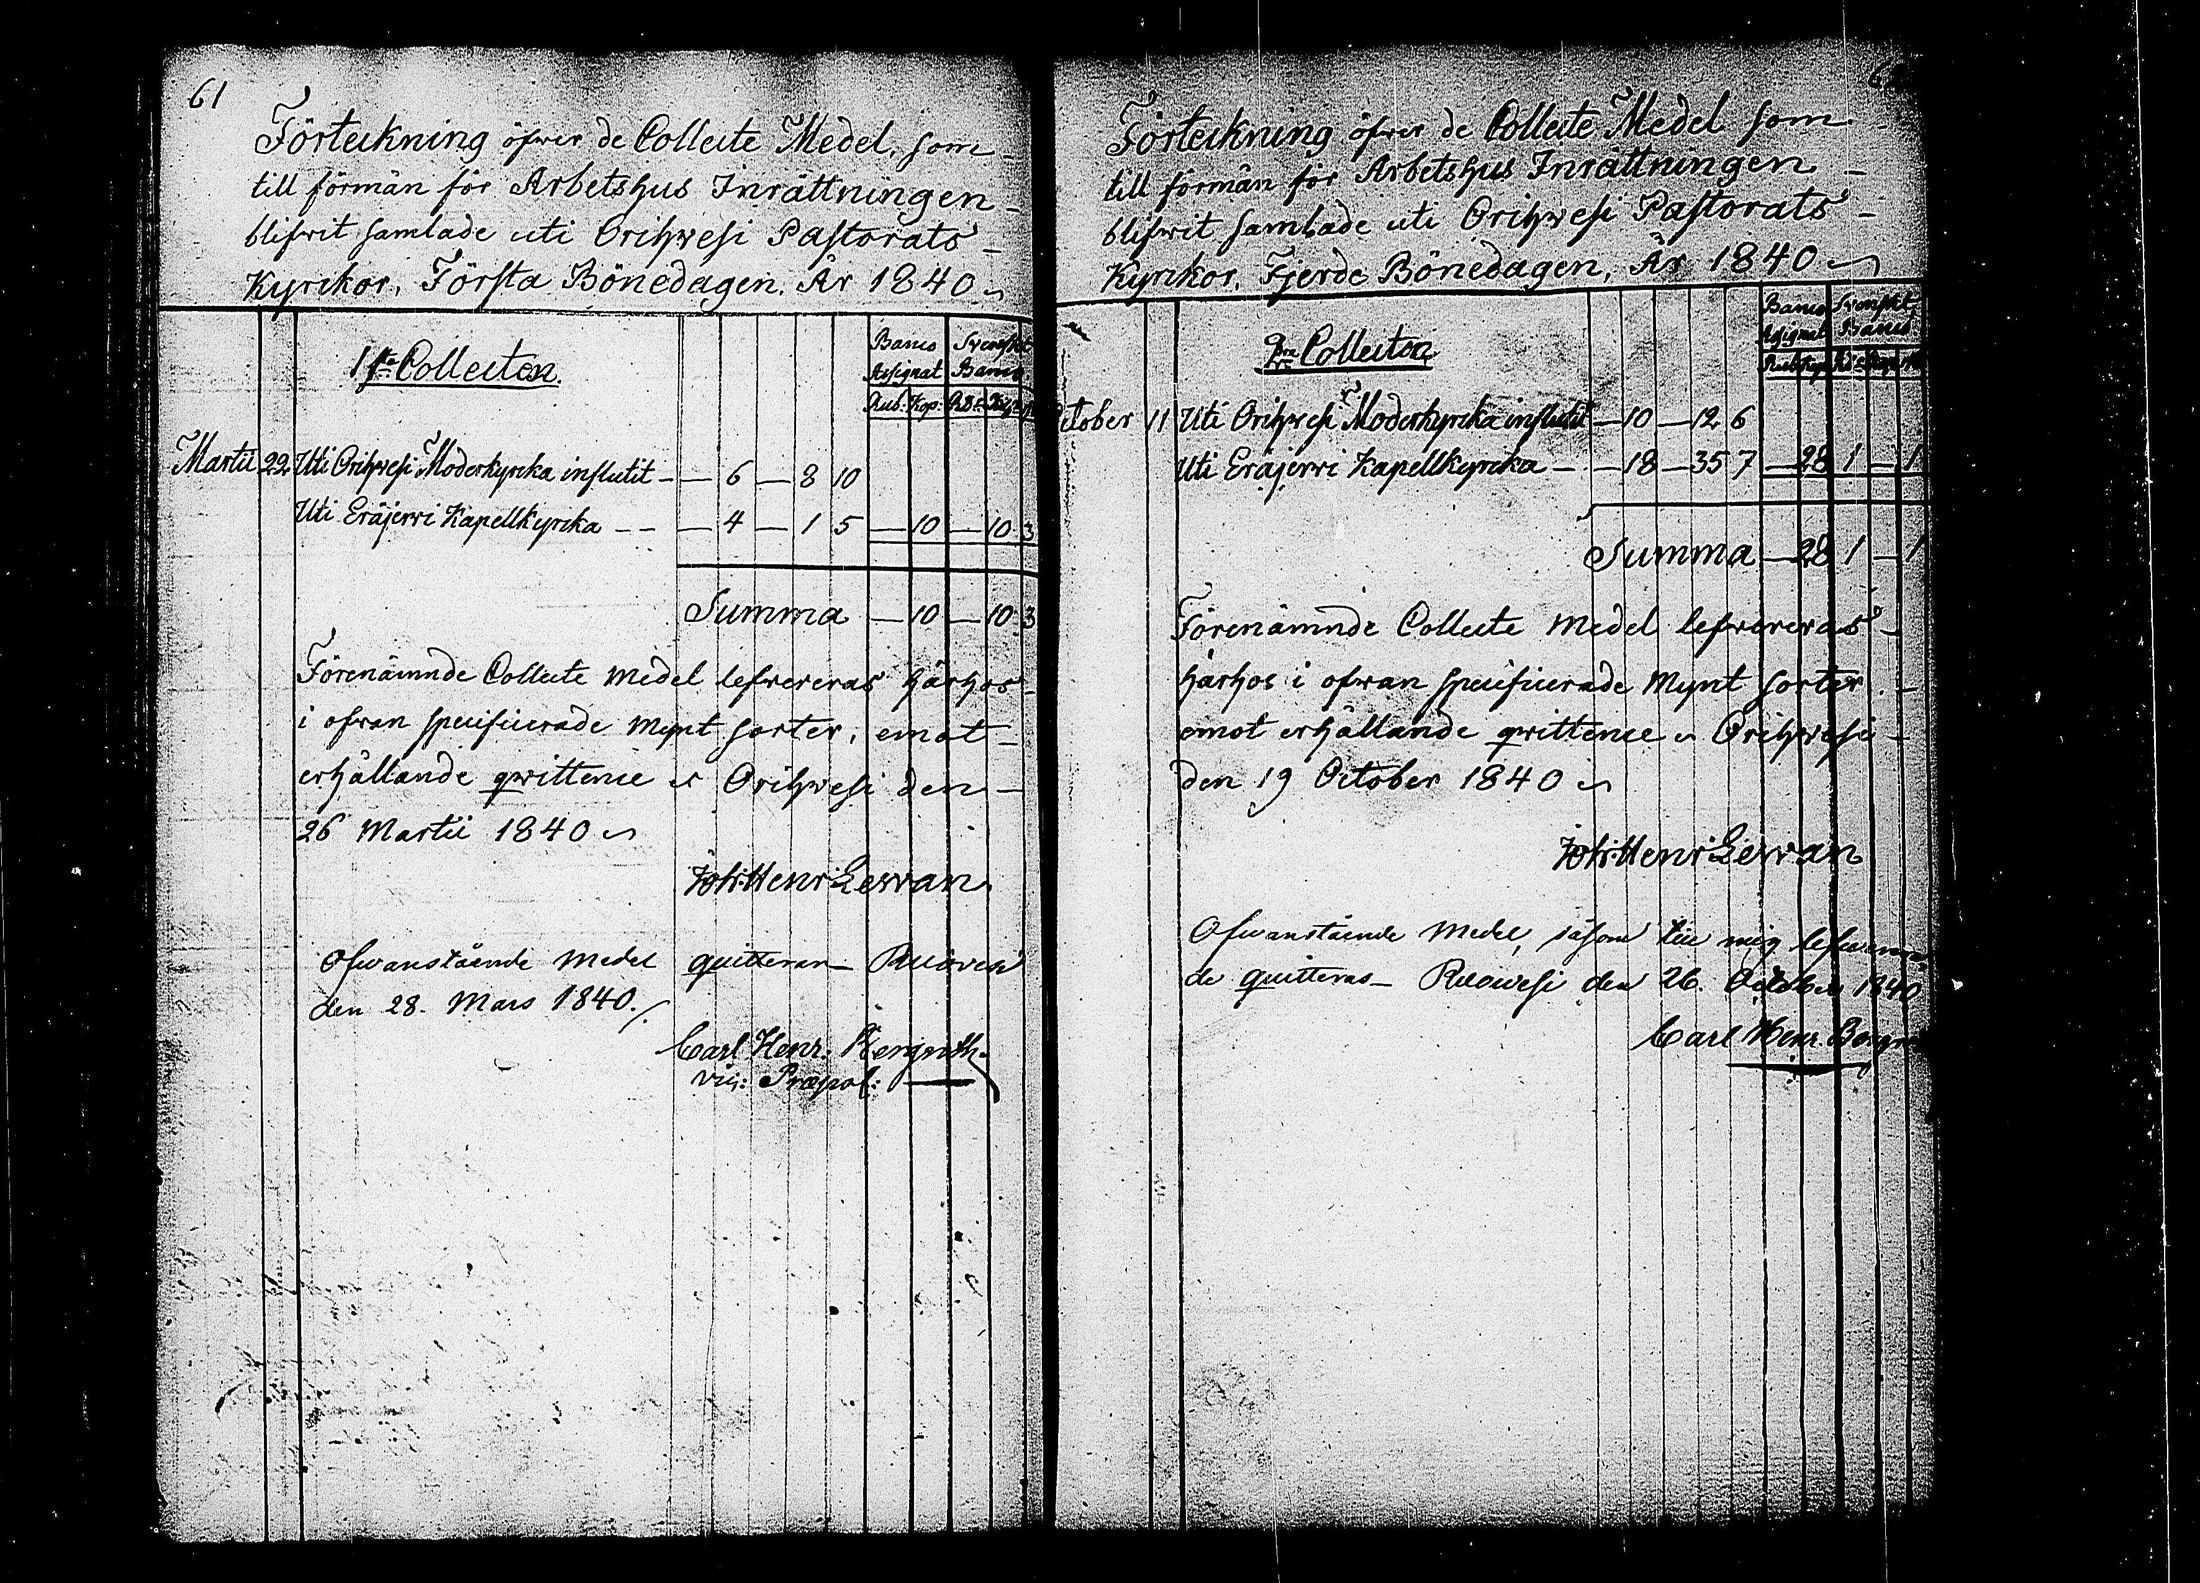 61
Förteckning öfwer de Collecte Medel, som
till förmån för Arbetshus Inrättningen
blifwit samlade uti Orihwesi Pastorats
Kyrckor, Första Bönedagen, År 1840
1sta Collecten
Banco Assignat Svenskt Banco
Rub. Kop. Rd.
Martii 22 Uti Orihwesi Moderkyrcka influtit — — 6 — 8 10
Uti Eräjerwi Kapellkyrcka — — — 4 — 1 5 — 10 — 10 3
Summa — 10 — 10 3
Förenämnde Collecte medel lefwereras härhos
i ofwan specificerade Mynt sorter, emot
erhållande qwittence Orihwesi den
26 Martii 1840
Joh: Henr: Lewan
Ofwanstående medel quitteras Ruovesi
den 28. Mars 1840.
Carl Henr. Bergroth
vic: Præpos:
Förteckning öfwer de Collecte Medel som
till förmån för Arbetshus Inrättningen
blifwit samlade uti Orihwesi Pastorats
Kyrckor, Fjerde Bönedagen, År 1840
2dra Collecten
Banco Assignat Svenskt Banco
October 11 Uti Orihwesi Moderkyrcka influtit — 10 — 12 6
Uti Eräjerwi Kapellkyrcka — — 18 — 35 7 — 28 1 — 1
Summa — 28 1 — 1
Förenämnde Collecte medel lefwereras
härhos i ofwan specificerade Mynt sorter
emot erhållande qwittence Orihwesi
den 19 October 1840
Joh: Henr: Lewan
Ofwanstående medel, såsom till mig lefwerera-
de quitteras — Ruowesi den 26. October 1840
Carl Henr. Bergr